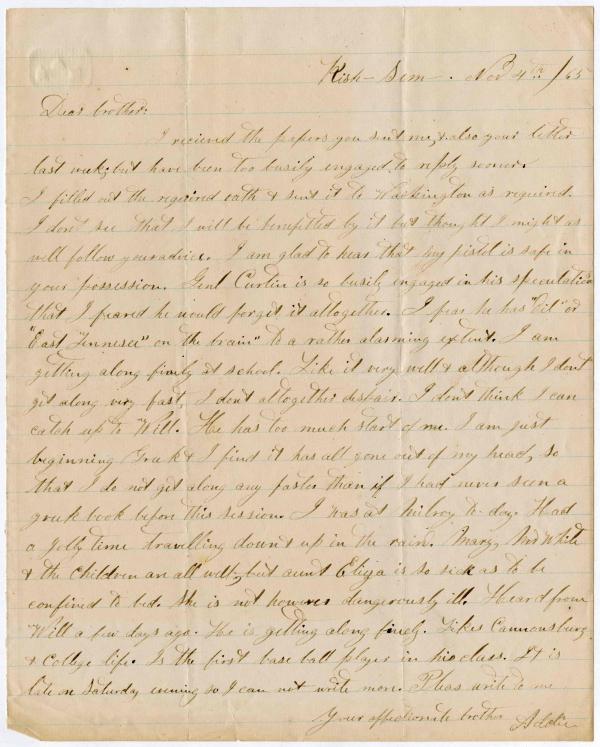 Kish - Sem -. Nov 4th /65
Dear brother:
I recieved the papers you sent me, & also your letter
last week; but have been too busily engaged to reply sooner.
I filled out the required oath & sent it to Washington as required.
I don't see that I will be benefitted by it but thought I might as
well follow your advice. I am glad to hear that my pistol is safe in
your possession. Genl Curtin is so busily engaged in his speculations
that I feared he would forget it altogether. I fear he has "Oil" or
"East Tennesee" on the brain" to a rather alarming extent. I am
getting along finely at school. Like it very well & although I don't
get along very fast, I don't altogether despair. I don't think I can
catch up to Will. He has too much start of me. I am just
beginning Greek & I find it has all gone out of my head, so
that I do not get along any faster than if I had never seen a
greek book before this session. I was at Milroy to-day. Had
a jolly time travelling down & up in the rain. Mary, White
& the children are all well, but aunt Eliza is so sick as to be
confined to bed. She is not however dangerously ill. Heard from
Will a few days ago. He is getting along finely. Likes Cannonsburg
& College life. Is the first base ball player in his class. It is
late on Saturday evening so I can not write more. Pleas write to me
Your affectionate brother